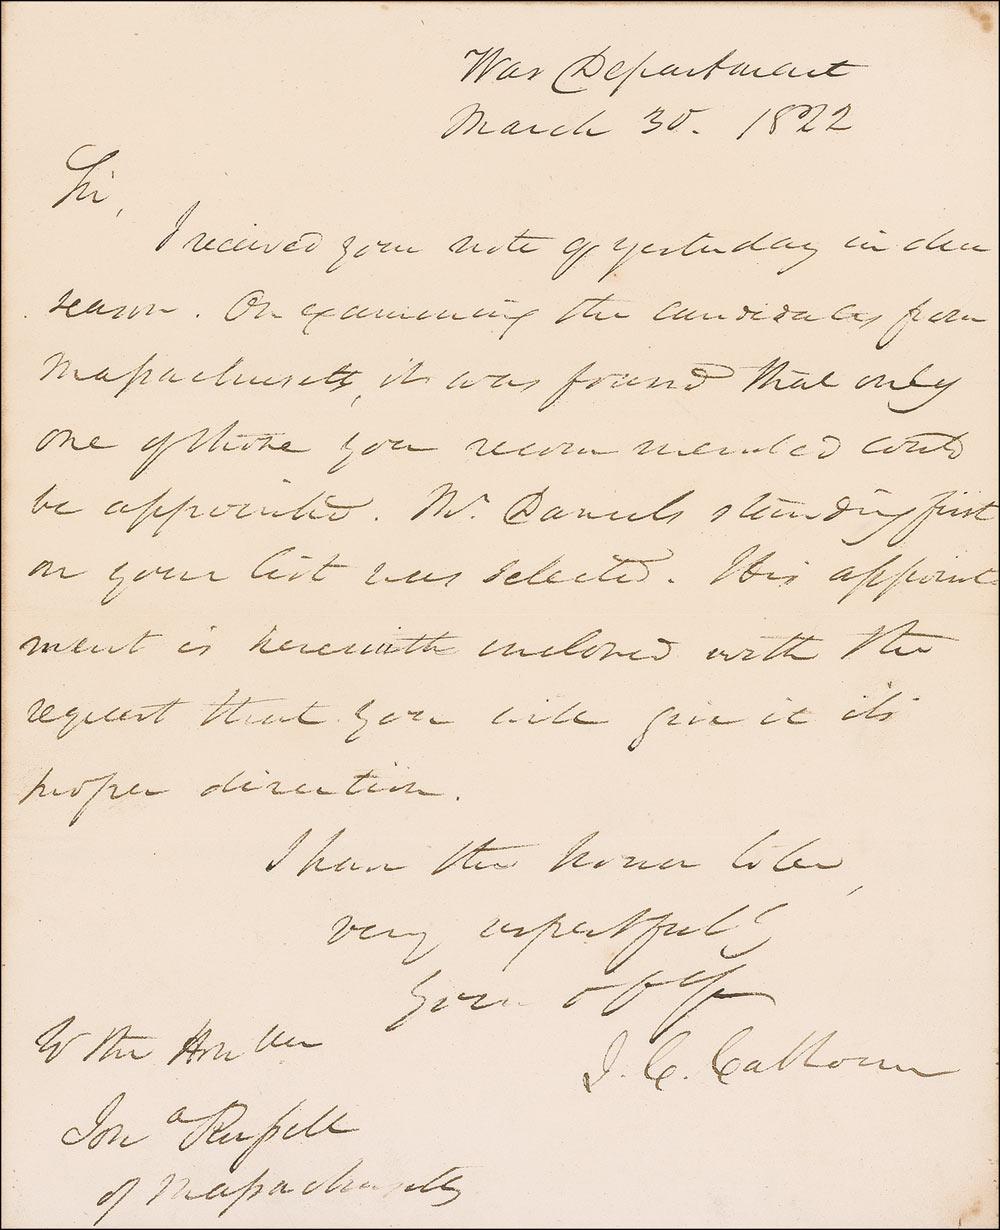 War Department
March 30. 1822
Sir,
I received your note of yesterday in due
season. On examining the candidates from
Massachusetts, it was found that only
one of those you recommended could
be appointed. Mr. Daniels standing first
on your list was selected. His appoint
ment is herewith enclosed with the
request that you will give it its
proper direction.
I have the honor to be,
very respectfully
Your
J. C. Calhoun
To the Honble
Jona Russell
of Massachusetts